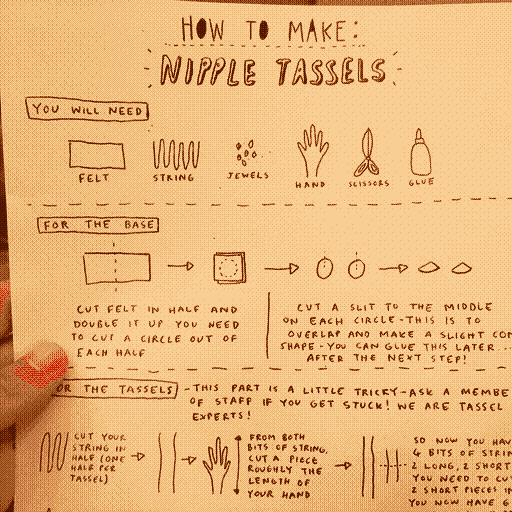 HOW TO MAKE:
NIPPLE TASSELS
YOU WILL NEED
FELT STRING JEWELS HAND SCISSORS GLUE
FOR THE BASE
CUT FELT IN HALF AND
DOUBLE IT UP YOU NEED
TO CUT A CIRCLE OUT OF
EACH HALF
CUT A SLIT TO THE MIDDLE
ON EACH CIRCLE - THIS IS TO
OVERLAP AND MAKE A SLIGHT CON
SHAPE - YOU CAN GLUE THIS LATER...
AFTER THE NEXT STEP!
OR THE TASSELS - THIS PART IS A LITTLE TRICKY - ASK A MEMBE
OF STAFF IF YOU GET STUCK! WE ARE TASSEL
EXPERTS!
CUT YOUR
STRING IN
HALF (ONE
HALF PER
TASSEL)
FROM BOTH
BITS OF STRING,
CUT A PIECE
ROUGHLY THE
LENGTH OF
YOUR HAND
SO NOW YOU HAV
4 BITS OF STRIN
2 LONG, 2 SHORT
YOU NEED TO CU
2 SHORT PIECES I
YOU NOW HAVE 6